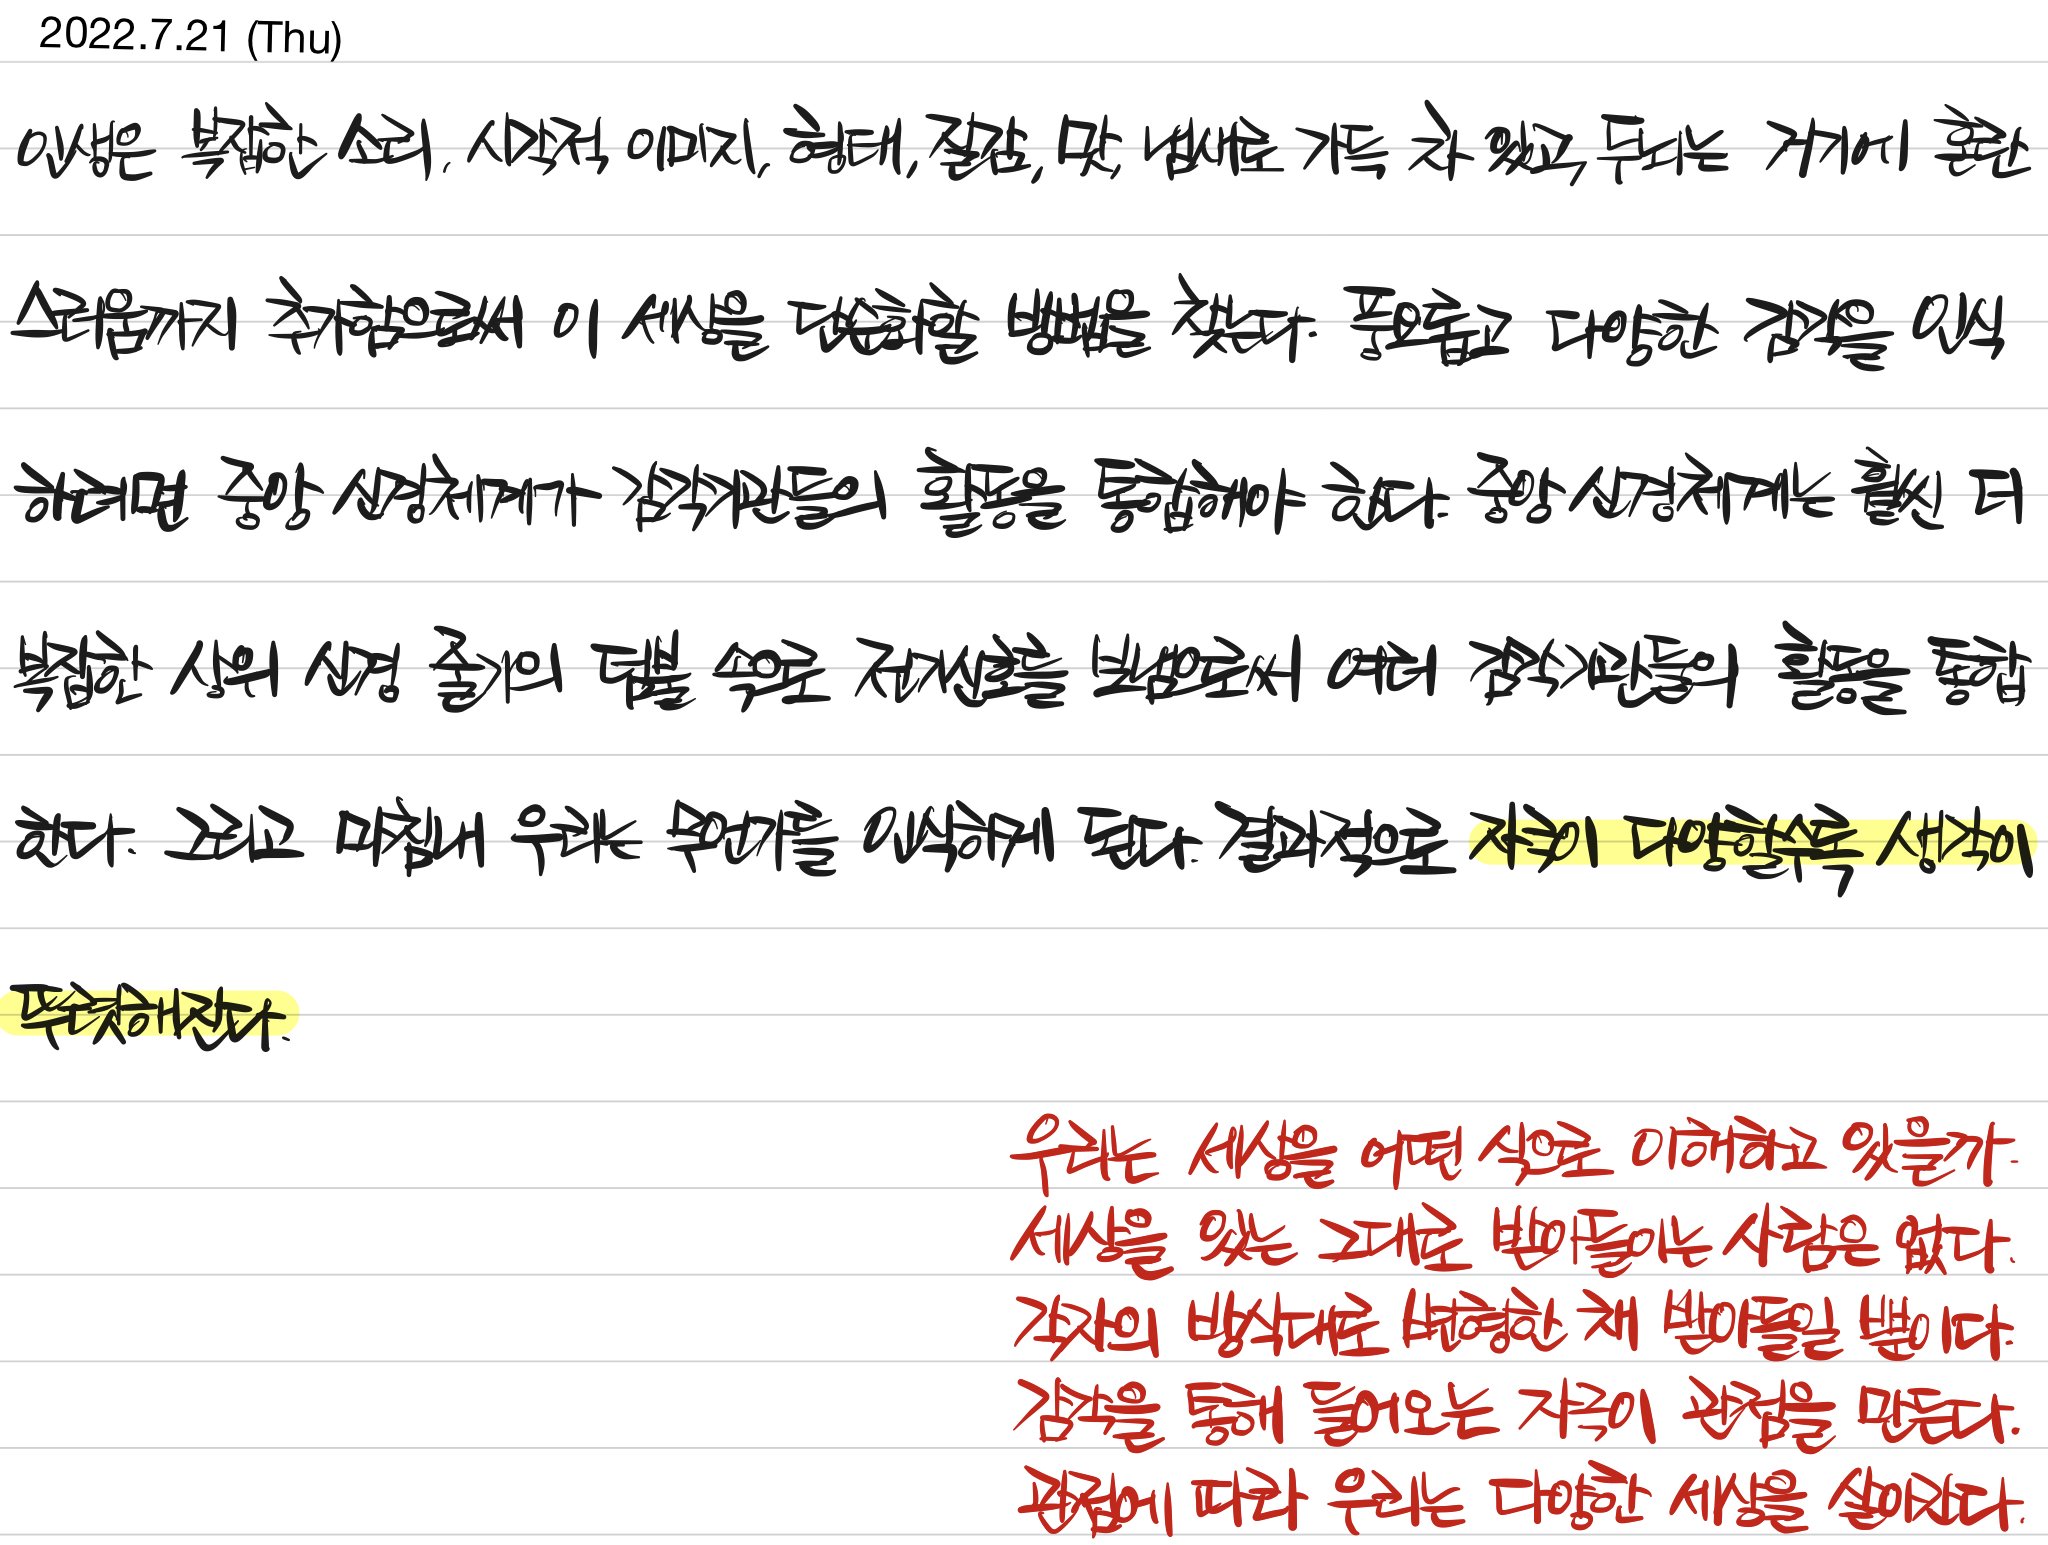 2022.7.21 (Thu)
인생은 복잡한 소리, 시각적 이미지, 형태, 질감, 맛, 냄새로 가득 차 있고, 두뇌는 거기에 혼란
스러움까지 추가함으로써 이 세상을 단순화할 방법을 찾는다. 풍요롭고 다양한 감각을 인식
하려면 중앙 신경체계가 감각기관들의 활동을 통합해야 한다. 중앙 신경체계는 훨씬 더
복잡한 상위 신경 줄기의 덤불 속으로 전기신호를 보냄으로써 여러 감각기관들의 활동을 통합
한다. 그리고 마침내 우리는 무언가를 인식하게 된다. 결과적으로 자극이 다양할수록 생각이
뚜렷해진다.
우리는 세상을 어떤 식으로 이해하고 있을까.
세상을 있는 그대로 받아들이는 사람은 없다.
각자의 방식대로 변형한 채 받아들일 뿐이다.
감각을 통해 들어오는 자극이 관점을 만든다.
관점에 따라 우리는 다양한 세상을 살아간다.